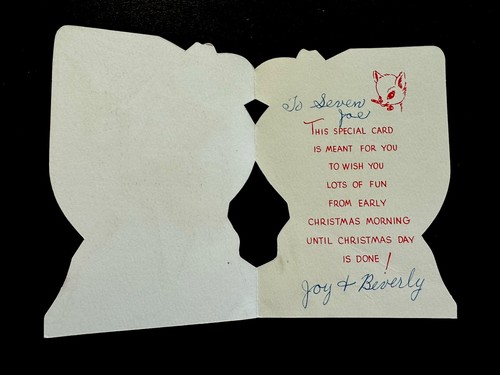 To Seven
Joe
THIS SPECIAL CARD
IS MEANT FOR YOU
TO WISH YOU
LOTS OF FUN
FROM EARLY
CHRISTMAS MORNING
UNTIL CHRISTMAS DAY
IS DONE!
Joy & Beverly